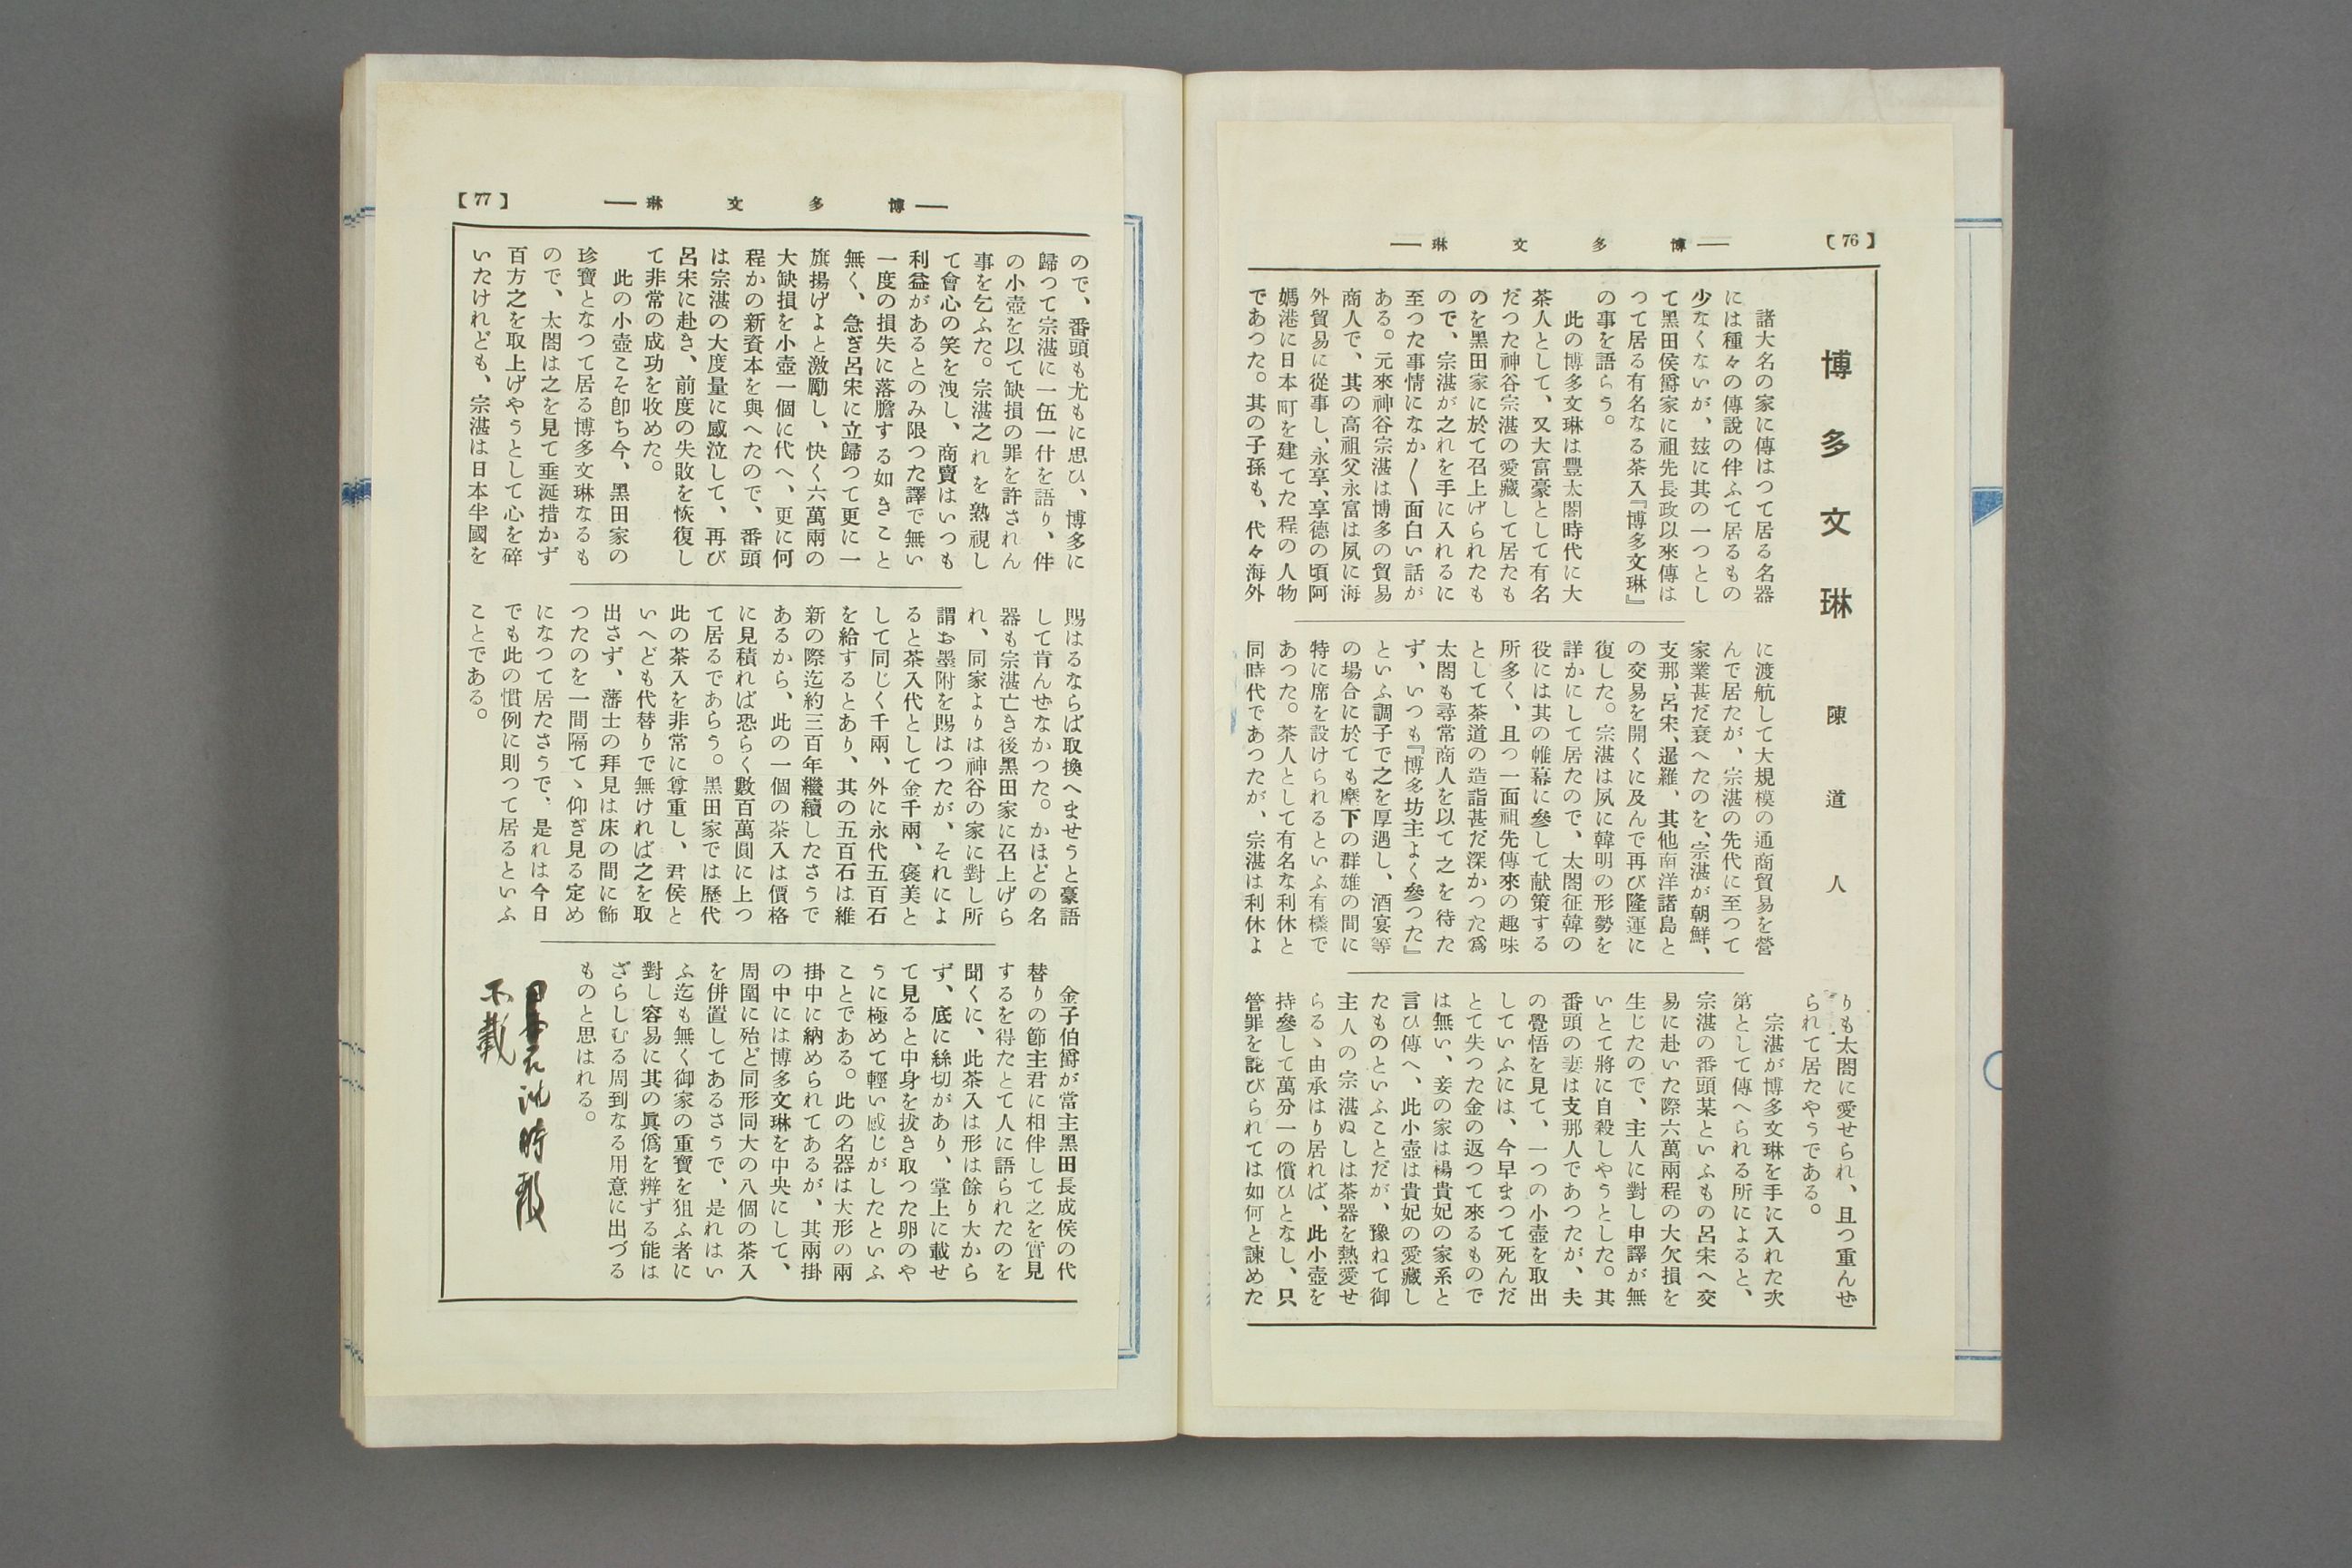 【76】
―博多文琳―
博多文琳
陳道人
諸大名の家に傳はつて居る名器
には種々の傳說の伴ふて居るもの
少なくないが、玆に其の一つとし
て黑田侯爵家に祖先長政以來傳は
つて居る有名なる茶入『博多文琳』
の事を語らう。
此の博多文琳は豐太閤時代に大
茶人として、又大富豪として有名
だつた神谷宗湛の愛藏して居たも
のを黑田家に於て召上げられたも
ので、宗湛が之れを手に入れるに
至つた事情になか〳〵面白い話が
ある。元來神谷宗湛は博多の貿易
商人で、其の高祖父永富は夙に海
外貿易に從事し、永享、享德の頃阿
媽港に日本町を建てた程の人物
であつた。其の子孫も、代々海外
に渡航して大規模の通商貿易を營
んで居たが、宗湛の先代に至つて
家業甚だ衰へたのを、宗湛が朝鮮、
支那、呂宋、暹羅、其他南洋諸島と
の交易を開くに及んで再び隆運に
復した。宗湛は夙に韓明の形勢を
詳かにして居たので、太閤征韓の
役には其の帷幕に參して献策する
所多く、且つ一面祖先傳來の趣味
として茶道の造詣甚だ深かつた爲
太閤も尋常商人を以て之を待た
ず、いつも『博多坊主よく參つた』
といふ調子で之を厚遇し、酒宴等
の場合に於ても麾下の群雄の間に
特に席を設けられるといふ有樣で
あつた。茶人として有名な利休と
同時代であつたが、宗湛は利休よ
りも太閤に愛せられ、且つ重んぜ
られて居たやうである。
宗湛が博多文琳を手に入れた次
第として傳へられる所によると、
宗湛の番頭某といふもの呂宋へ交
易に赴いた際六萬兩程の大欠損を
生じたので、主人に對し申譯が無
いとて將に自殺しやうとした。其
番頭の妻は支那人であつたが、夫
の覺悟を見て、一つの小壺を取出
していふには、今早まつて死んだ
とて失つた金の返つて來るもので
は無い、妾の家は楊貴妃の家系と
言ひ傳へ、此小壺は貴妃の愛藏し
たものといふことだが、豫ねて御
主人の宗湛ぬしは茶器を熱愛せ
らるゝ由承はり居れば、此小壺を
持參して萬分一の償ひとなし、只
管罪を詫びられては如何と諫めた
【77】
―博多文琳―
ので、番頭も尤もに思ひ、博多に
歸つて宗湛に一伍一什を語り、件
の小壺を以て缺損の罪を許されん
事を乞ふた。宗湛之れを熟視し
て會心の笑を洩し、商賣はいつも
利益があるとのみ限つた譯で無い
一度の損失に落膽する如きこと
無く、急ぎ呂宋に立歸つて更に一
旗揚げよと激勵し、快く六萬兩の
大缺損を小壺一個に代へ、更に何
程かの新資本を與へたので、番頭
は宗湛の大度量に感泣して、再び
呂宋に赴き、前度の失敗を恢復し
て非常の成功を收めた。
此の小壺こそ卽ち今、黑田家の
珍寶となつて居る博多文琳なるも
ので、太閤は之を見て垂涎措かず
百方之を取上げやうとして心を碎
いたけれども、宗湛は日本半國を
賜はるならば取換へませうと豪語
して肯んぜなかつた。かほどの名
器も宗湛亡き後黑田家に召上げら
れ、同家よりは神谷の家に對し所
謂お墨附を賜はつたが、それによ
ると茶入代として金千兩、褒美と
して同じく千兩、外に永代五百石
を給するとあり、其の五百石は維
新の際迄約三百年繼續したさうで
あるから、此の一個の茶入は價格
に見積れば恐らく數百萬圓に上つ
て居るであらう。黑田家では歷代
此の茶入を非常に尊重し、君侯と
いへども代替りで無ければ之を取
出さず、藩士の拜見は床の間に飾
つたのを一間隔てゝ仰ぎ見る定め
になつて居たさうで、是れは今日
でも此の慣例に則つて居るといふ
ことである。
金子伯爵が當主黑田長成侯の代
替りの節主君に相伴して之を實見
するを得たとて人に語られたのを
聞くに、此茶入は形は餘り大から
ず、底に絲切があり、掌上に載せ
て見ると中身を拔き取つた卵のや
うに極めて輕い感じがしたといふ
ことである。此の名器は大形の兩
掛中に納められてあるが、其兩掛
の中には博多文琳を中央にして、
周圍に殆ど同形同大の八個の茶入
を併置してあるさうで、是れはい
ふ迄も無く御家の重寶を狙ふ者に
對し容易に其の眞僞を辨ずる能は
ざらしむる周到なる用意に出づる
ものと思はれる。
不載